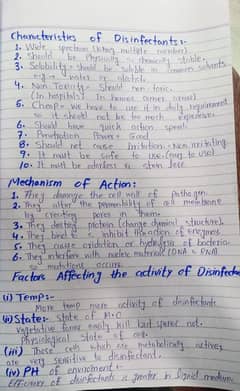 Characteristics of Disinfectants:-
1. Wide spectrum (killing multiple number)
2. Should be Physically & chemically stable.
3. Solubility: should be soluble in common solvents.
e.g. water or alcohol.
4. Non-Toxicity: Should non-toxic.
(In hospitals) In human
5. Cheap: We have to use it in daily requirement
so it should not be too much expensive.
6. Should have quick action speed.
7. Penetration Power: Good
8. Should not cause Irritation: Non irritating.
9. It must be safe to use. (easy to use)
10. It must be odorless & stain less.
Mechanism of Action:
1. They damage the cell wall of pathogen.
2. They alter the permeability of cell membrane
by creating pores in them.
3. They destroy protein (change chemical structure)
4. They bind & inhibit the action of enzymes
5. They cause oxidation or hydrolysis of bacteria.
6. They interfere with nucleic materials (DNA & RNA)
so mutations occurs.
Factors Affecting the activity of Disinfecta
(i) Temp:-
More temp more activity of disinfectants
(ii) State:- State of M.O
Vegetative forms easily kill but spores not.
Physiological State of cell.
(iii) These cell which are metabolically actives
are very sensitive to disinfectant.
(iv) PH of
Efficacy of disinfectants is greater in medium